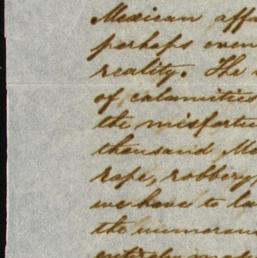 Mexican affa
perhaps even
reality. The
of calamities
the misfortu
thousand Me
rape, robbery,
we have to la
the innumera
entirely ma